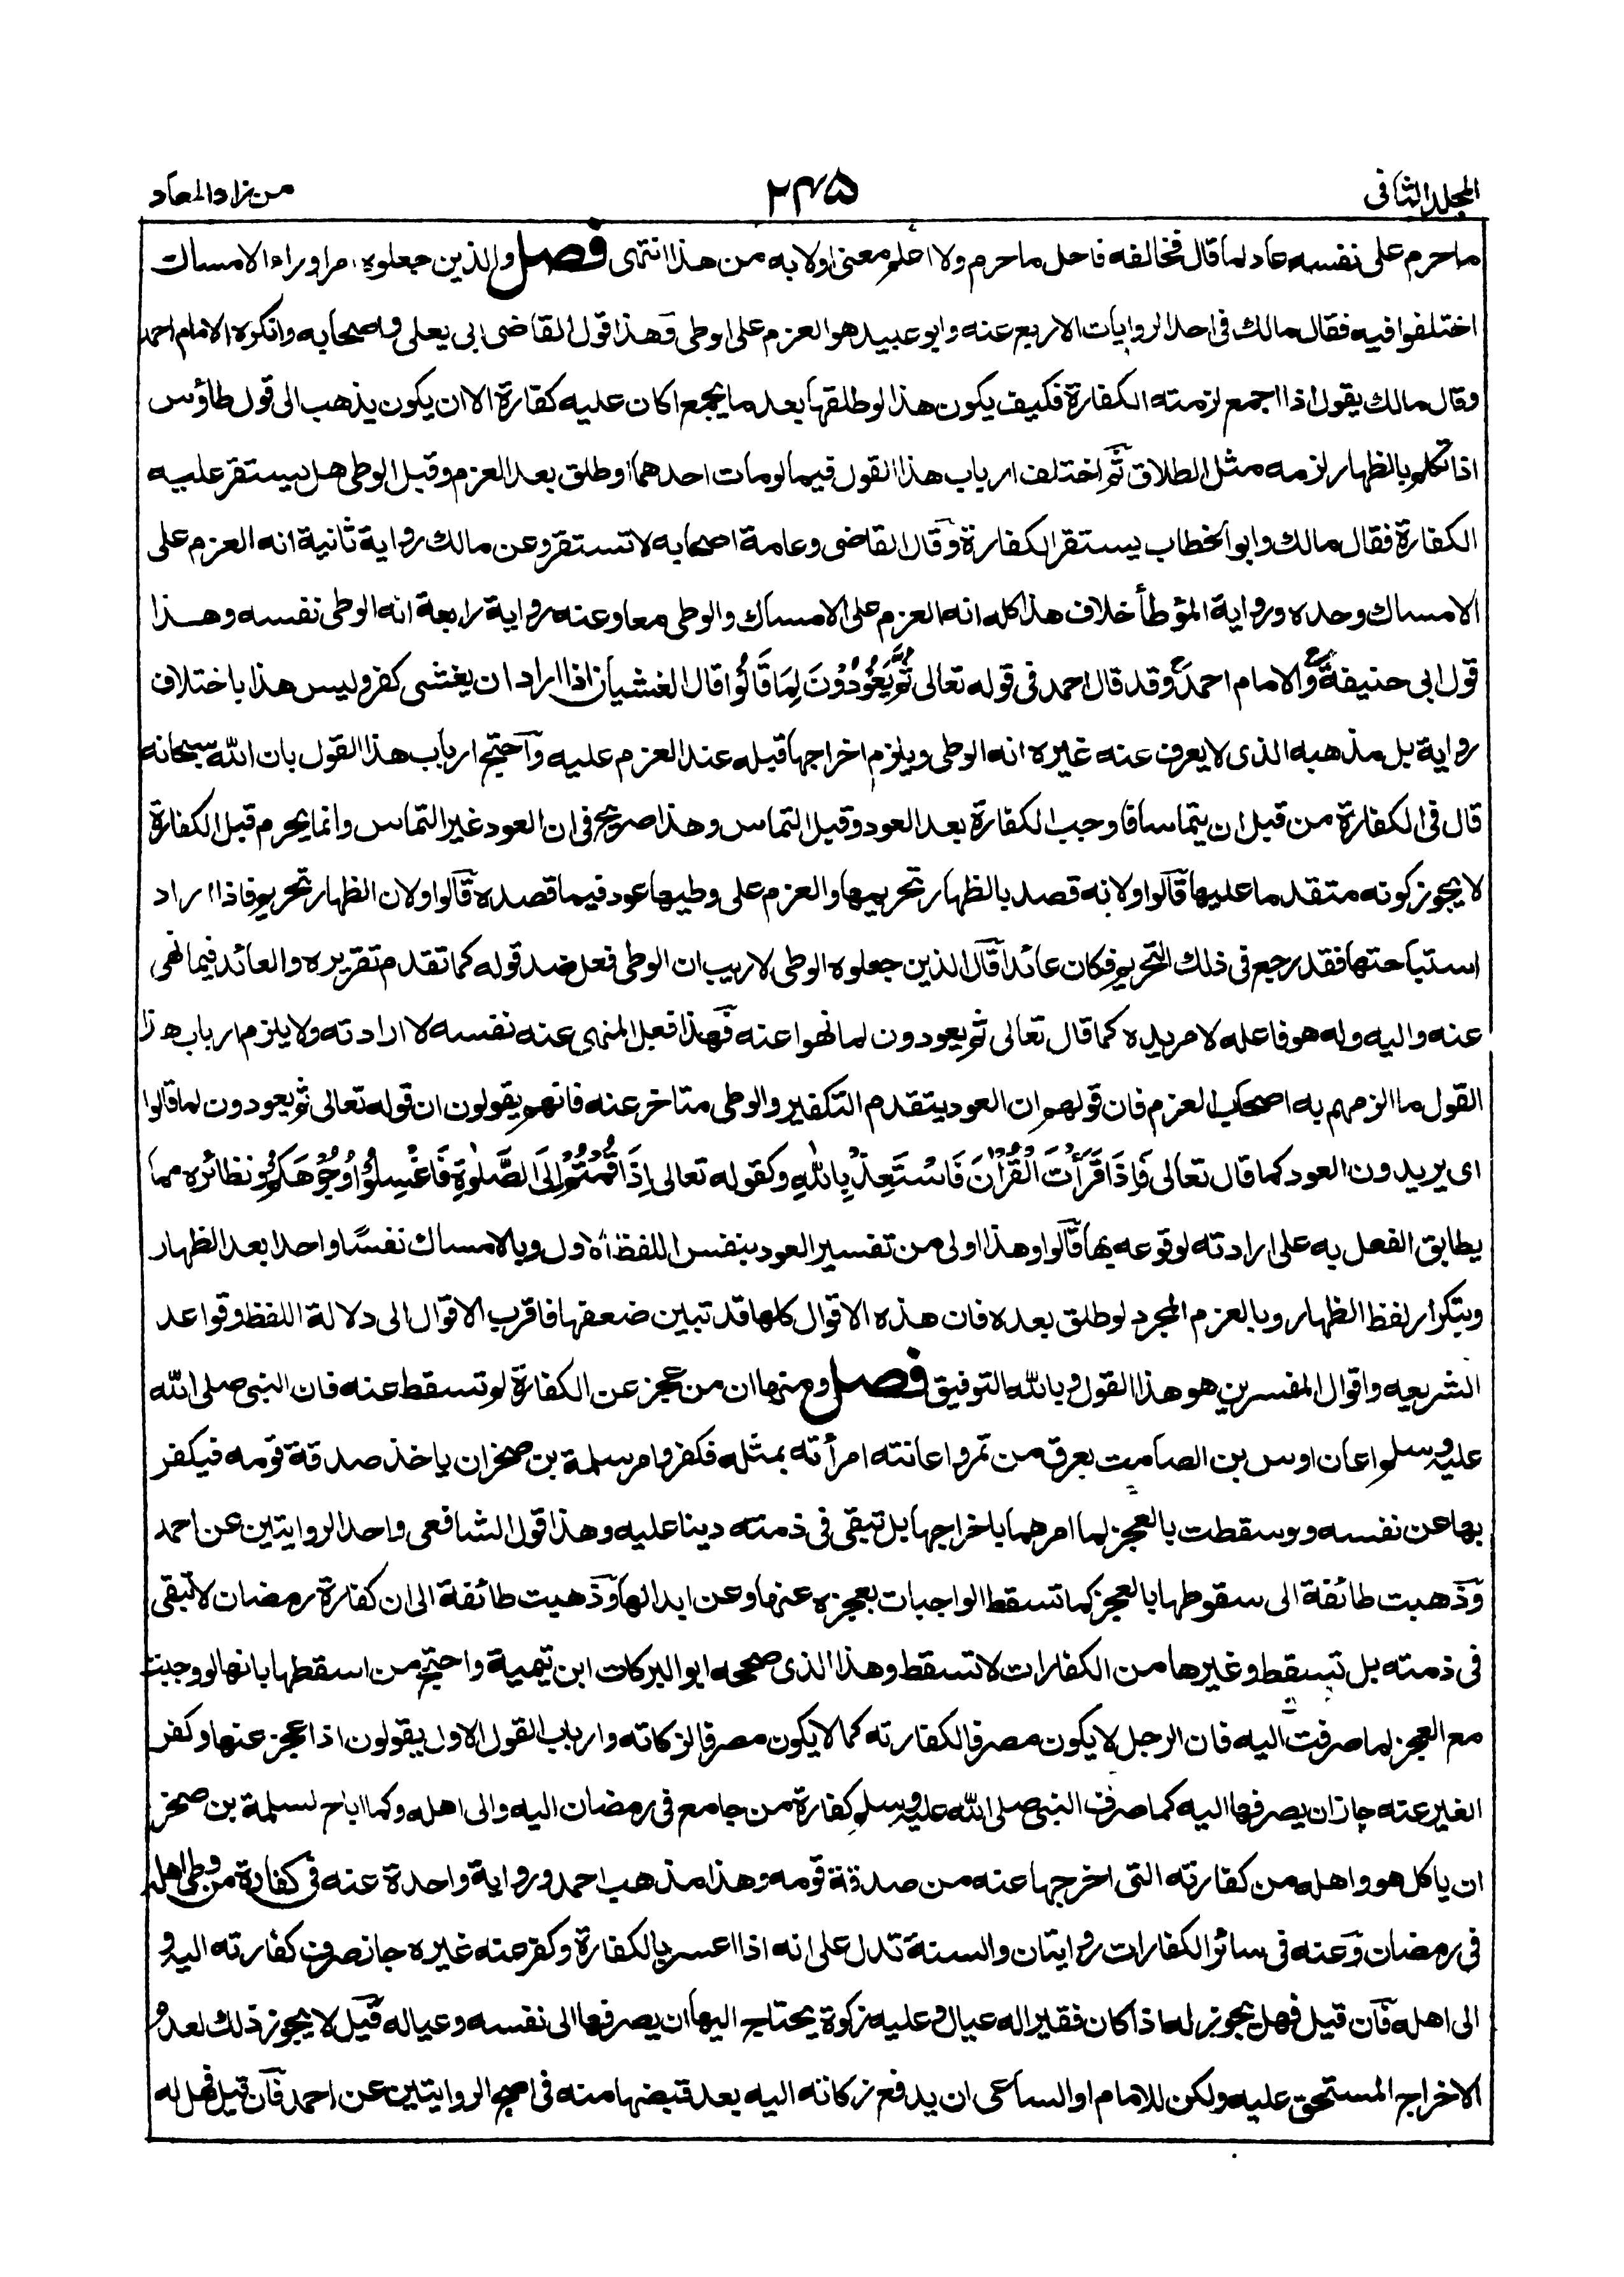 المجلد الثانى
٢٣٥
من زاد المعاد
ما حرم على نفسه عاد لما قال فخالفه فاحل ما حرم ولا اعلم معنى اولا به من هذا انتهى فصل والذين جعلوه امرا وراء الامساك
اختلفوا فيه فقال مالك فى احد الروايات الاربع عنه وابو عبيد هو العزم على الوطى وهذا قول القاضى ابى يعلى واصحابه وانكره الامام احمد
وقال مالك يقول اذا اجمع لزمته الكفارة فكيف يكون هذا لو طلقها بعد ما يجمع اكان عليه كفارة الا ان يكون يذهب الى قول طاؤس
اذا تكلم بالظهار لزمه مثل الطلاق ثم اختلف ارباب هذا القول فيما لو مات احدهما او طلق بعد العزم وقبل الوطى هل يستقر عليه
الكفارة فقال مالك وابو الخطاب يستقر الكفارة وقال القاضى وعامة اصحابه لا تستقر وعن مالك رواية ثانية انه العزم على
الامساك وحده ورواية المؤطأ خلاف هذا كله انه العزم على الامساك والوطى معا وعنه رواية رابعة انه الوطى نفسه وهذا
قول ابى حنيفة والامام احمد وقد قال احمد فى قوله تعالى ثُمَّ يَعُوْدُوْنَ لِمَا قَالُوْا قال الغشيان اذا اراد ان يغشى كفر وليس هذا باختلاف
رواية بل مذهبه الذى لا يعرف عنه غيره انه الوطى ويلزم اخراجها قبله عند العزم عليه واحتج ارباب هذا القول بان الله سبحانه
قال فى الكفارة من قبل ان يتماسا فاوجب الكفارة بعد العود وقبل التماس وهذا صريح فى ان العود غير التماس وانما يحرم قبل الكفارة
لا يجوز كونه متقدما عليها قالوا ولانه قصد بالظهار تحريمها والعزم على وطيها عود فيما قصده قالوا ولان الظهار تحريم فاذا اراد
استباحتها فقد رجع فى ذلك التحريم فكان عائدا قال الذين جعلوه الوطى لا ريب ان الوطى فعل ضد قوله كما تقدم تقريره والعائد فيما نهى
عنه واليه وله هو فاعله لا مريده كما قال تعالى ثم يعودون لما نهوا عنه فهذا فعل المنهى عنه نفسه لا ارادته ولا يلزم ارباب هذا
القول ما الزمهم به اصحاب العزم فان قولهم ان العود يتقدم التكفير والوطى متاخر عنه فانهم يقولون ان قوله تعالى ثم يعودون لما قالوا
اى يريدون العود كما قال تعالى فَاِذَا قَرَأْتَ الْقُرْاٰنَ فَاسْتَعِذْ بِاللّٰهِ وكقوله تعالى اِذَا قُمْتُمْ اِلَى الصَّلٰوةِ فَاغْسِلُوْا وُجُوْهَكُمْ ونظائره مما
يطابق الفعل به على ارادته لوقوعه بها قالوا وهذا اولى من تفسير العود بنفس اللفظ الاول وبالامساك نفسًا واحدا بعد الظهار
وبتكرار لفظ الظهار وبالعزم المجرد لو طلق بعده فان هذه الاقوال كلها قد تبين ضعفها فاقرب الاقوال الى دلالة اللفظ وقواعد
الشريعه واقوال المفسرين هو هذا القول وبالله التوفيق فصل ومنها ان من عجز عن الكفارة لم تسقط عنه فان النبى صلى الله
عليه وسلم اعان اوس بن الصامت بعرق من تمر واعانته امرأته بمثله فكفر وامر سلمة بن صخر ان ياخذ صدقة قومه فيكفر
بها عن نفسه ولو سقطت بالعجز لما امرهما باخراجها بل تبقى فى ذمته دينا عليه وهذا قول الشافعى واحد الروايتين عن احمد
وذهبت طائفة الى سقوطها بالعجز كما تسقط الواجبات بعجزه عنها وعن ابدالها وذهبت طائفة الى ان كفارة رمضان لا تبقى
فى ذمته بل تسقط وغيرها من الكفارات لا تسقط وهذا الذى صححه ابو البركات ابن تيمية واحتج من اسقطها بانها لو وجبت
مع العجز لما صرفت اليه فان الرجل لا يكون مصرفا لكفارته كما لا يكون مصرفا لزكاته وارباب القول الاول يقولون اذا عجز عنها وكفر
الغير عنه جاز ان يصرفها اليه كما صرف النبى صلى الله عليه وسلم كفارة من جامع فى رمضان اليه والى اهله وكما اباح لسلمة بن صخر
ان ياكل هو واهله من كفارته التى اخرجها عنه من صدقة قومه وهذا مذهب احمد ورواية واحدة عنه فى كفارة من وطى اهله
فى رمضان وعنه فى سائر الكفارات روايتان والسنة تدل على انه اذا اعسر بالكفارة وكفر عنه غيره جاز صرف كفارته اليه و
الى اهله فان قيل فهل يجوز له اذا كان فقيرا له عيال وعليه زكوة يحتاج اليها ان يصرفها الى نفسه وعياله قيل لا يجوز ذلك لعدم
الاخراج المستحق عليه ولكن للامام او الساعى ان يدفع زكاته اليه بعد قبضها منه فى اصح الروايتين عن احمد فان قيل فهل له